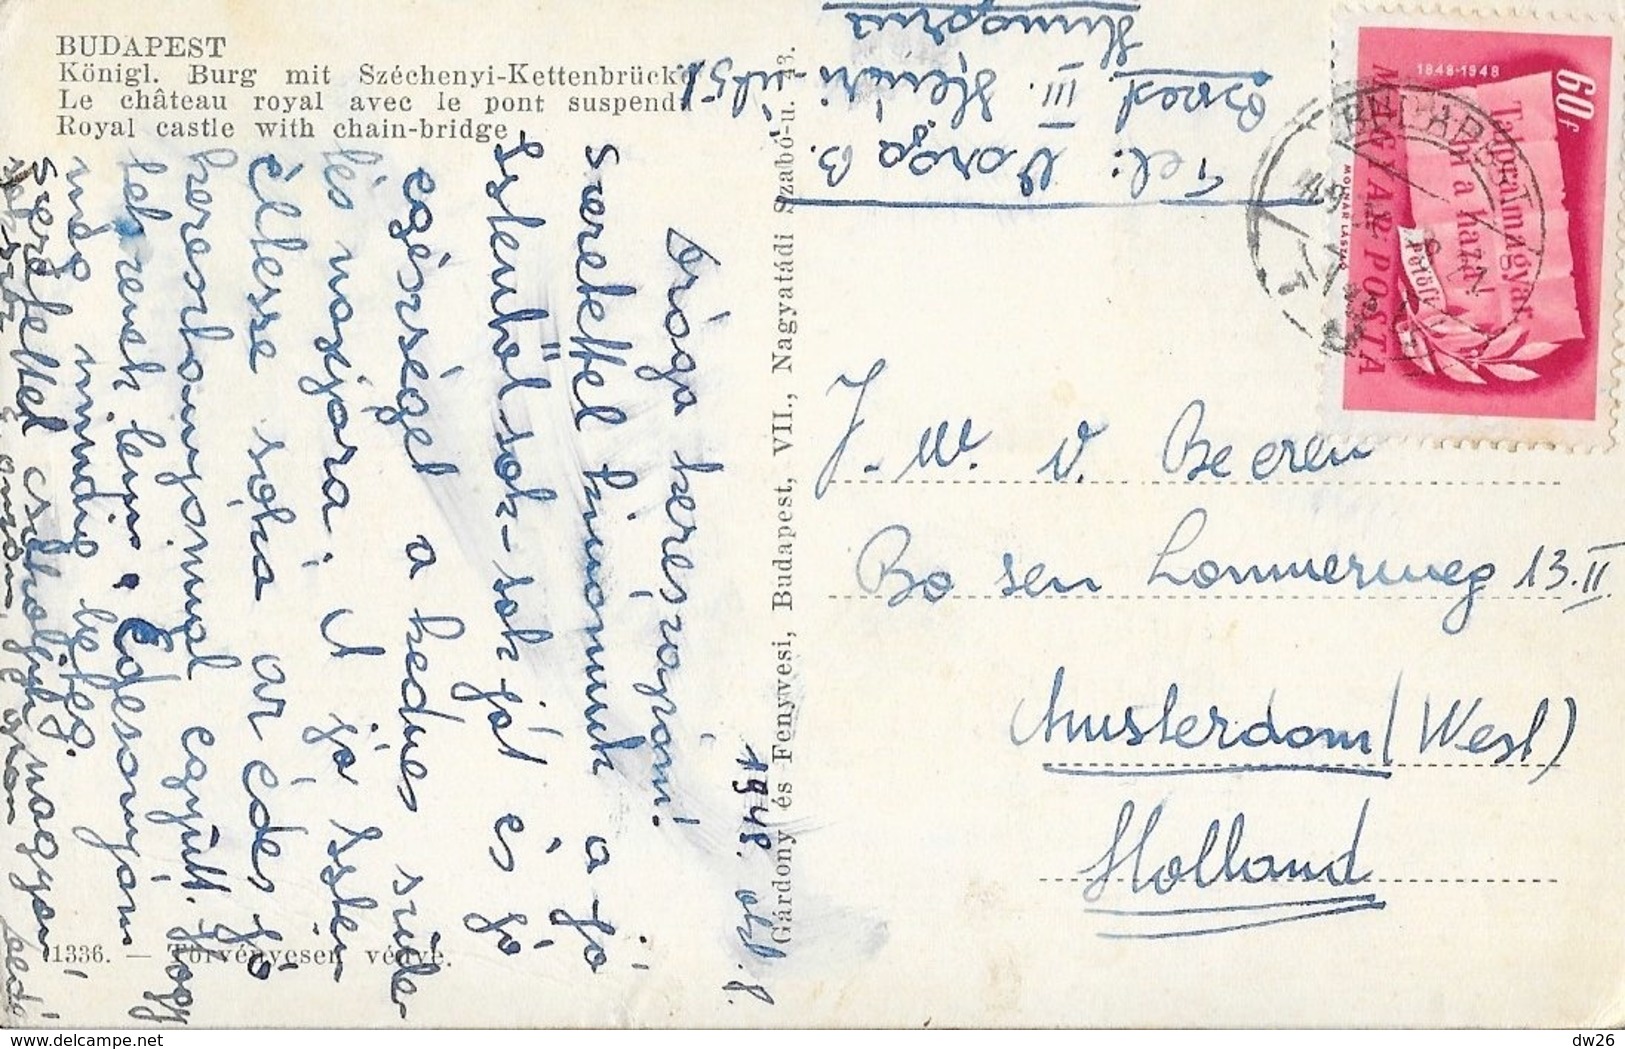 BUDAPEST
Königl. Burg mit Széchenyi-Kettenbrücke
Le château royal avec le pont suspendu
Royal castle with chain-bridge
1948. okt. 8.
Drága keresztapám!
Szeretettel kívánunk a jó
Istentől sok-sok jót és jó
egészséget a kedves szüle-
és nagyjára. A jó Isten
éltesse soká az édes jó
keresztanyámmal együtt. Hogy
lehetnek lenn. Édesanyám
még mindig beteg.
Szeretettel csókoljuk nagyon
1336. — Törvényesen védve.
Gárdony és Fenyvesi, Budapest, VII., Nagyatádi Szabó-u. 43.
Fel: Varga B.
Bpest III.
Hungaria
1848-1948
60f
MAGYAR POSTA
Talpra magyar,
hí a haza!
Petőfi
MOLNÁR LÁSZLÓ
BUDAPEST
J. W. v. Beeren
Bo sen Lommerweg 13.II
Amsterdam (West)
Holland
dw26